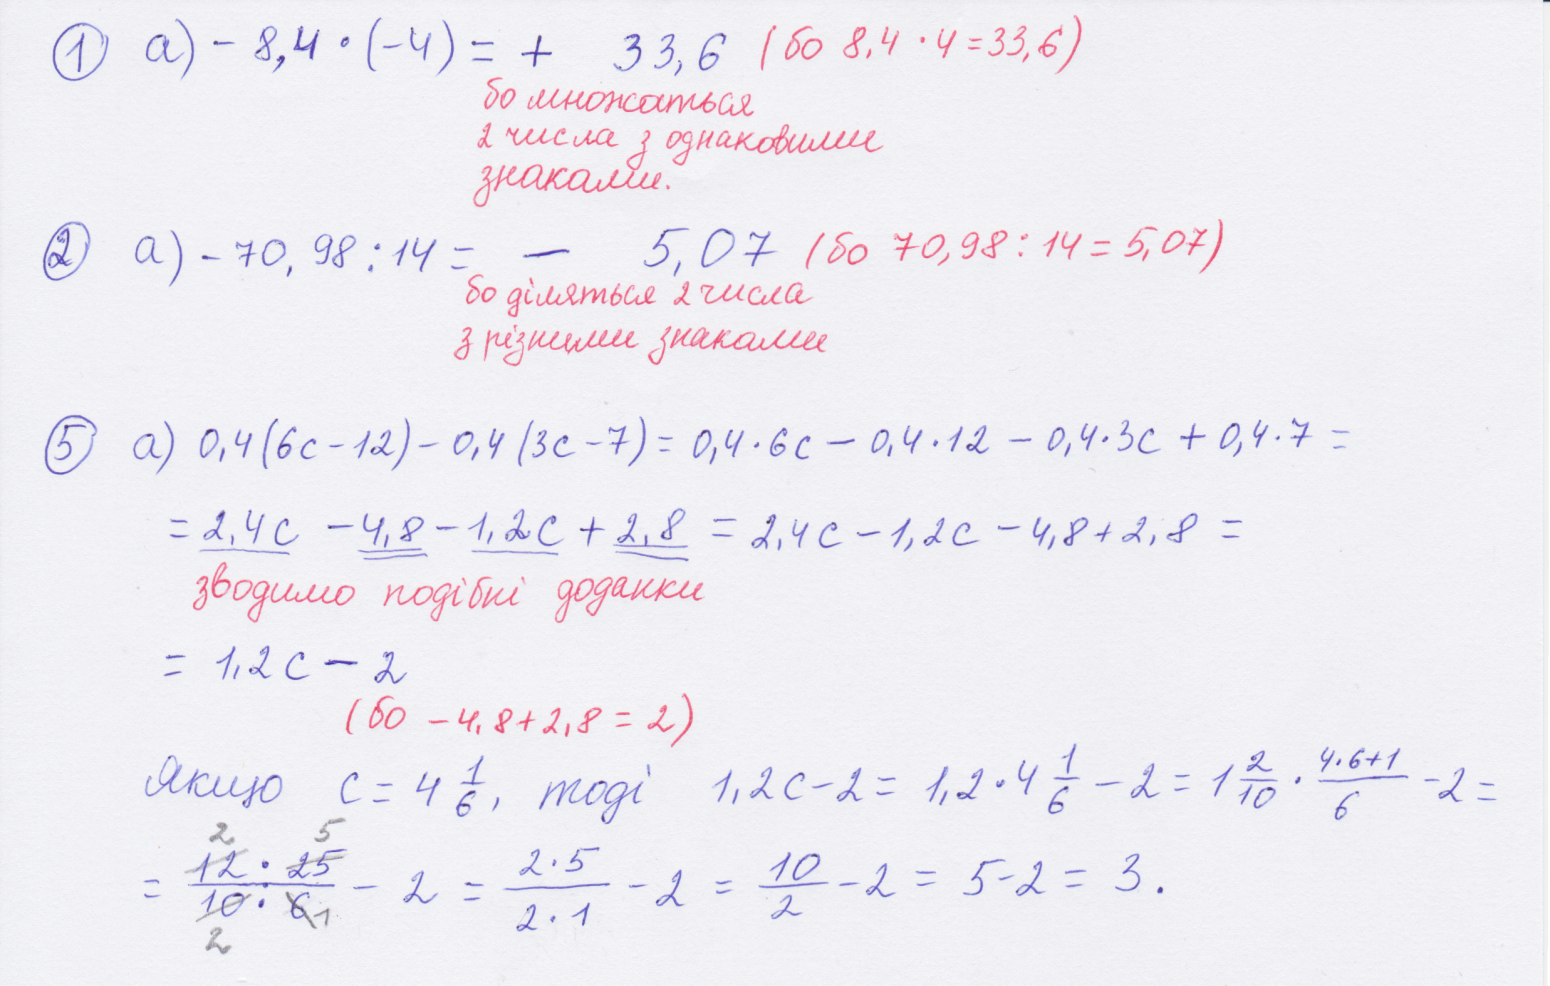 ① а) - 8,4 · (-4) = + 33,6 (бо 8,4 · 4 = 33,6)
бо множаться
2 числа з однаковими
знаками.
② а) - 70,98 : 14 = - 5,07 (бо 70,98 : 14 = 5,07)
бо діляться 2 числа
з різними знаками
⑤ а) 0,4(6с - 12) - 0,4(3с - 7) = 0,4·6с - 0,4·12 - 0,4·3с + 0,4·7 =
= 2,4с - 4,8 - 1,2с + 2,8 = 2,4с - 1,2с - 4,8 + 2,8 =
зводимо подібні доданки
= 1,2с - 2
(бо -4,8 + 2,8 = 2)
Якщо с = 4 1/6, тоді 1,2с - 2 = 1,2 · 4 1/6 - 2 = 1 2/10 · (4·6+1)/6 - 2 =
2 5
= (12 · 25)/(10 · 6) - 2 = (2·5)/(2·1) - 2 = 10/2 - 2 = 5 - 2 = 3.
2 1